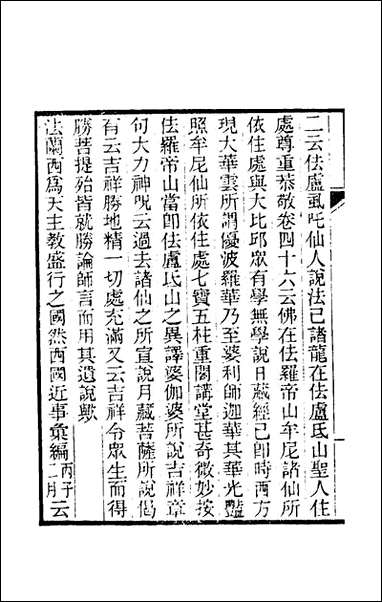 二云佉盧虱吒仙人說法已諸龍在佉盧氐山聖人住
處尊重恭敬卷四十六云佛在佉羅帝山牟尼諸仙所
依住處與大比邱眾有學無學說日藏經已卽時西方
現大華雲所謂優波羅華乃至婆利師迦華其華光豔
照牟尼仙所依住處七寶五柱重閣講堂甚奇微妙按
佉羅帝山當卽佉盧氐山之異譯婆伽婆所說吉祥章
句大力神呪云過去諸仙之所宣說月藏菩薩所說偈
有云吉祥勝地精一切處充滿又云吉祥令眾生而得
勝菩提殆皆就勝論師言而用其遺說歟
法蘭西為天主教盛行之國然西國近事彙編丙子二月云